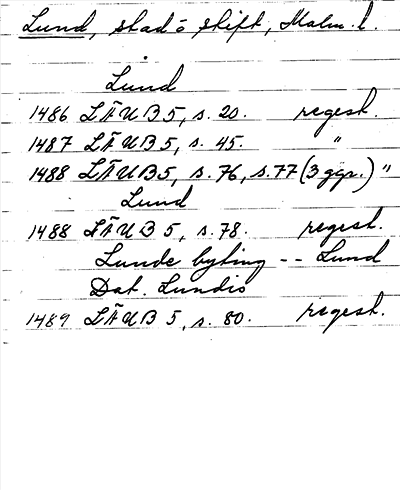 Lund, stad o stift, Malm. l.
Lund
1486 LÄUB 5, s. 20. regest.
1487 LÄUB 5, s. 45. "
1488 LÄUB 5, s. 76, s. 77 (3 ggr.) "
Lund
1488 LÄUB 5, s. 78. regest.
Lunde byting -- Lund
Dat. Lundis
1489 LÄUB 5, s. 80. regest.